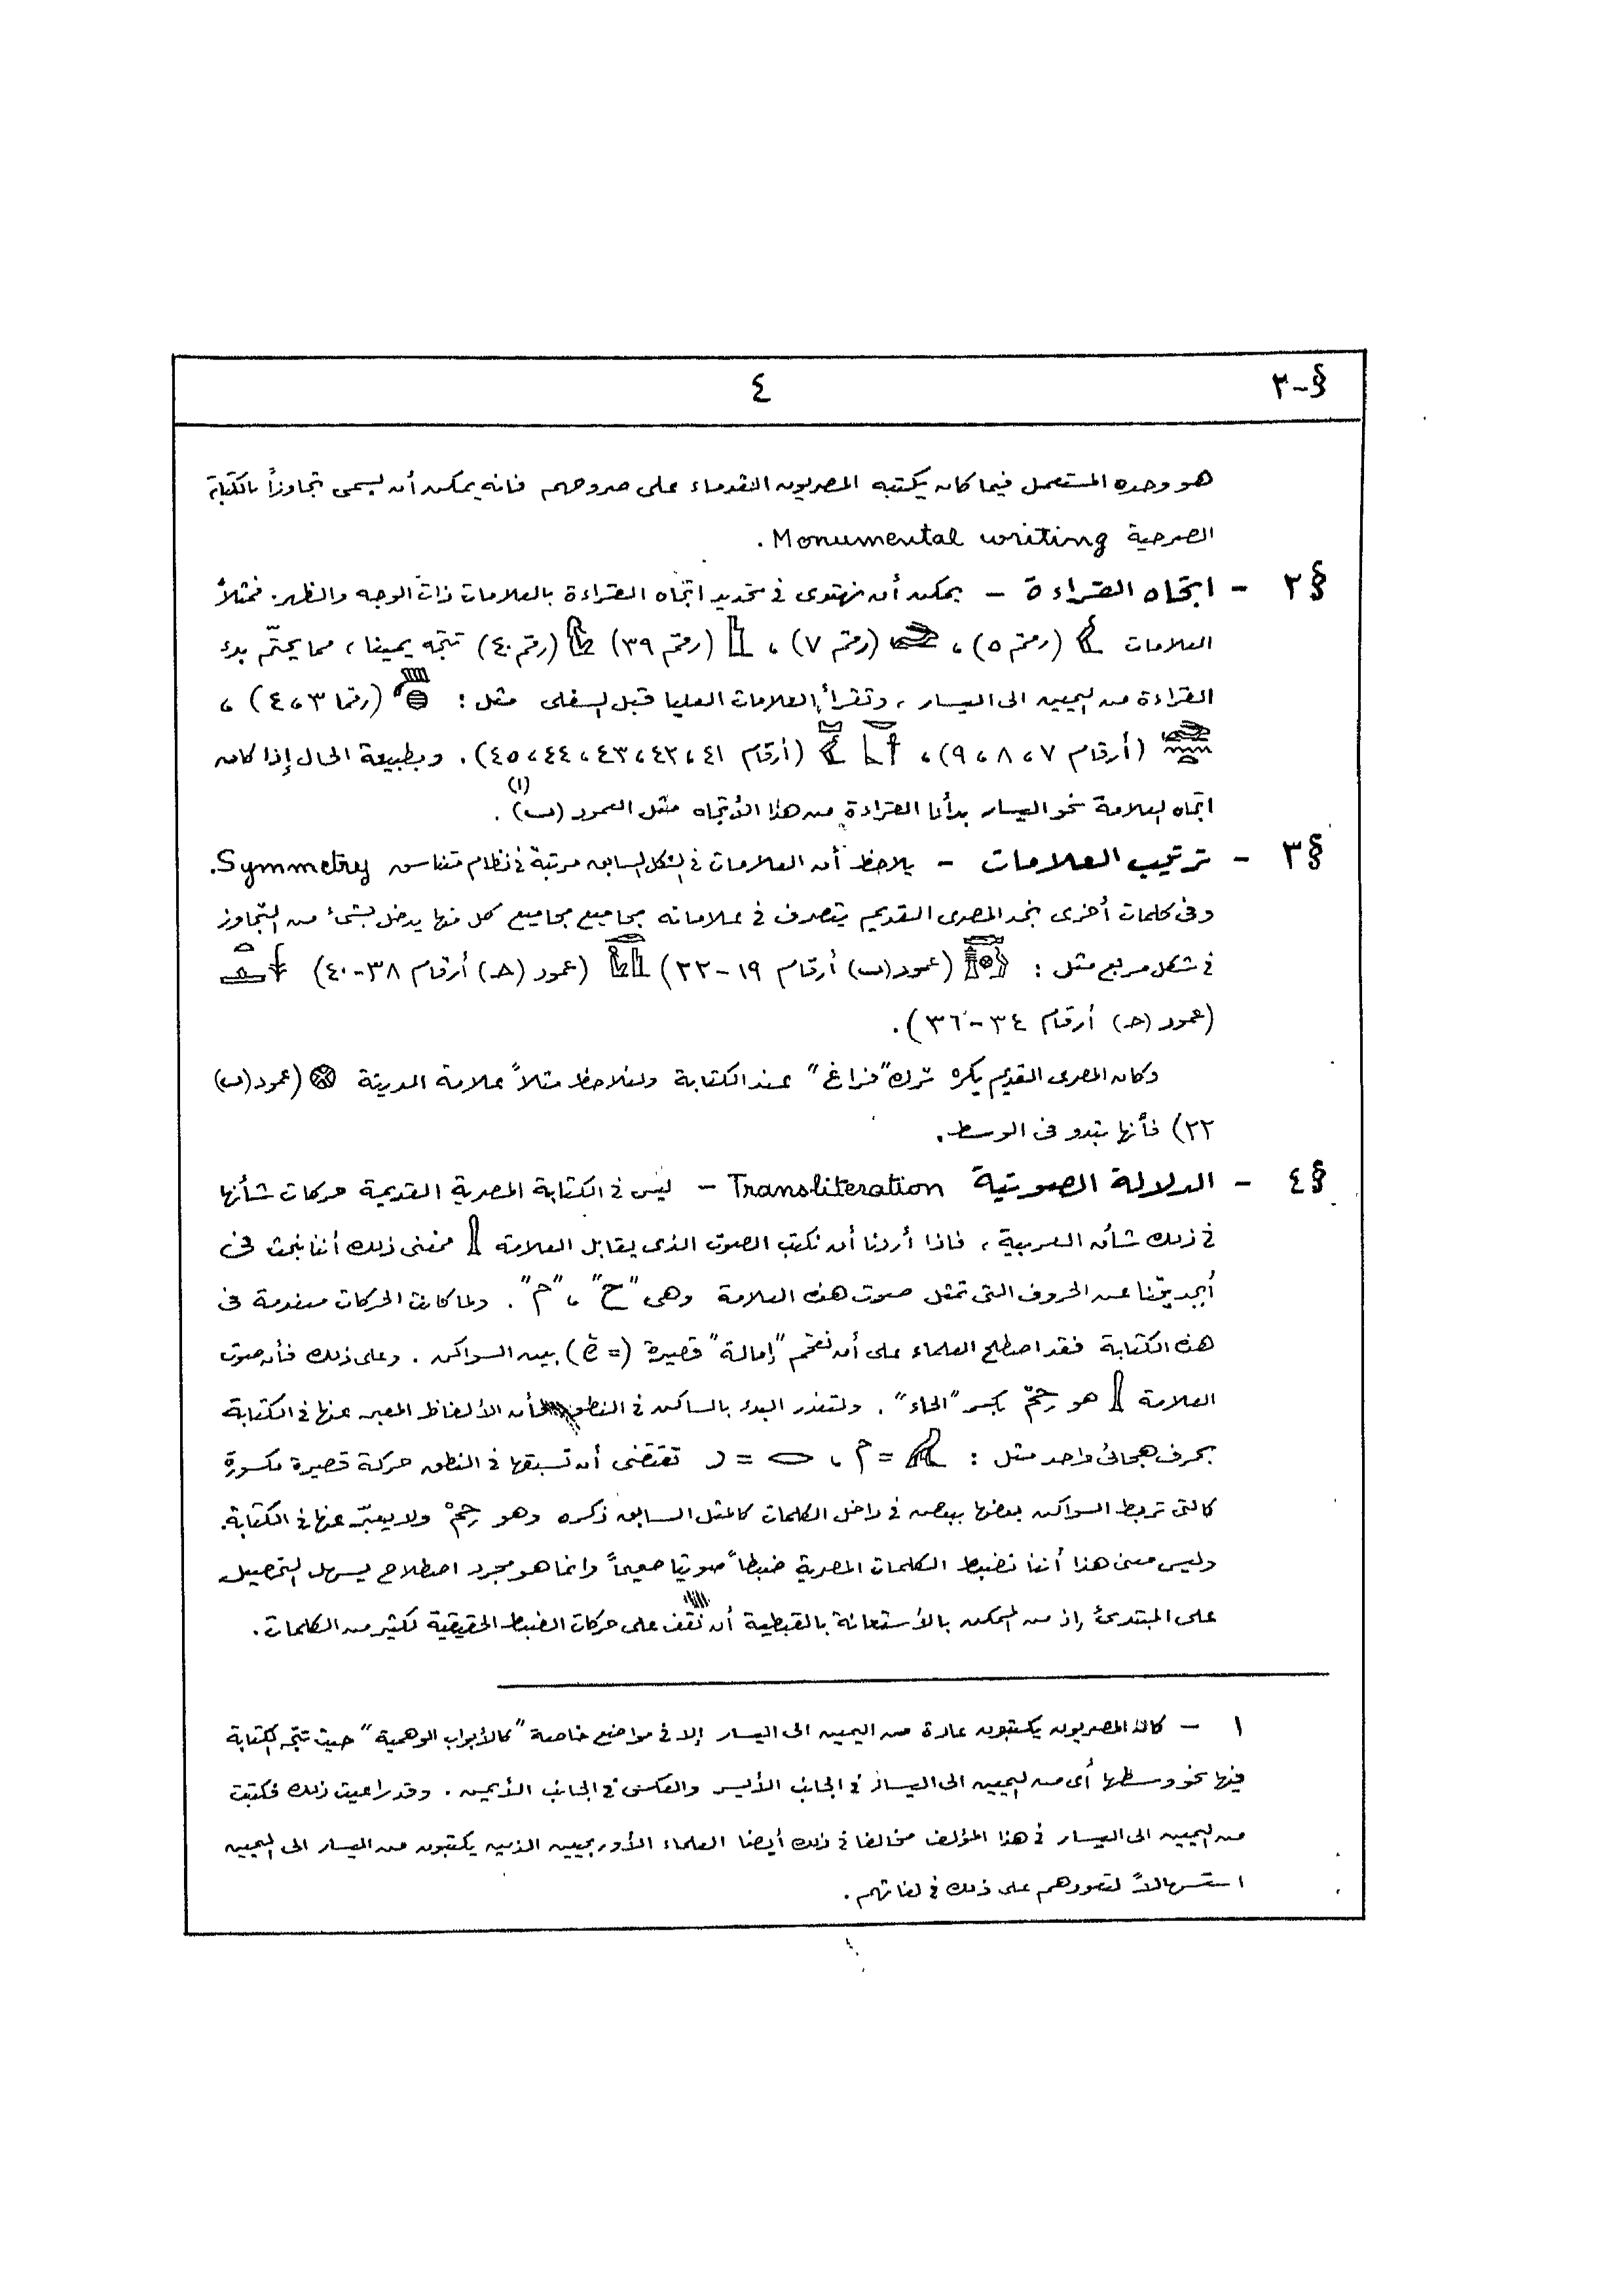 §-٢
٤
هو وحده المستعمل فيما كان يكتبه المصريون القدماء على صروحهم فانه يمكن أن يسمى تجاوزاً بالكتابة
الصرحية Monumental writing .
§٢ - اتجاه القراءة - يمكن أن نهتدى فى تحديد اتجاه القراءة بالعلامات ذات الوجه والظهر. فمثلاً
العلامات (رقم ٥) ، (رقم ٧) ، (رقم ٣٩) (رقم ٤٠) تتجه يمينا ، مما يحتّم بدء
القراءة من اليمين الى اليسار ، وتقرأ العلامات العليا قبل السفلى مثل : (رقما ٣،٤) ،
(أرقام ٧،٨،٩) ، (أرقام ٤١،٤٢،٤٣،٤٤،٤٥) . وبطبيعة الحال إذا كان
اتجاه العلامة نحو اليسار بدأنا القراءة من هذا الأتجاه مثل العمود (ب) (١) .
§٣ - ترتيب العلامات - يلاحظ أن العلامات فى الشكل السابق مرتبة فى نظام متناسق Symmetry.
وفى كلمات أخرى نجد المصرى القديم يتصرف فى علاماته مجاميع مجاميع كل منها يدخل بشىء من التجاوز
فى شكل مربع مثل : (عمود (ب) أرقام ١٩-٢٢) (عمود (حـ) أرقام ٣٨-٤٠)
(عمود (حـ) أرقام ٣٤-٣٦) .
وكان المصرى القديم يكره ترك "فراغ" عند الكتابة ولنلاحظ مثلاً علامة المدينة (عمود (ب)
٢٢) فأنها تبدو فى الوسط .
§٤ - الدلالة الصوتية Transliteration - ليس فى الكتابة المصرية القديمة حركات شأنها
فى ذلك شأن العربية ، فاذا أردنا أن نكتب الصوت الذى يقابل العلامة فمعنى ذلك أننا نبحث فى
أبجديتنا عن الحروف التى تمثل صوت هذه العلامة وهى "ح" ، "م" . ولما كانت الحركات منعدمة فى
هذه الكتابة فقد اصطلح العلماء على أن نقحم "إمالة" قصيرة (= ĕ) بين السواكن . وعلى ذلك فأن صوت
العلامة هو حِمّ بكسر "الحاء" . ولتعذر البدء بالساكن فى النطق فأن الألفاظ المعبر عنها فى الكتابة
بحرف هجائى واحد مثل : = م ، = ر تقتضى أن تسبقها فى النطق حركة قصيرة مكسورة
كالتى تربط السواكن بعضها ببعض فى داخل الكلمات كالمثل السابق ذكره وهو حِمْ ولا يعبّر عنها فى الكتابة.
وليس معنى هذا أننا نضبط الكلمات المصرية ضبطاً صوتيا صحيحاً وانما هو مجرد اصطلاح يسهل التحصيل
على المبتدئ إذ من الممكن بالأستعانة بالقبطية أن نقف على حركات الضبط الحقيقية لكثير من الكلمات .
١ - كان المصريون يكتبون عادة من اليمين الى اليسار إلا فى مواضع خاصة "كالأبواب الوهمية" حيث تتجه الكتابة
فيها نحو وسطها أى من اليمين الى اليسار فى الجانب الأيسر والعكس فى الجانب الأيمن . وقد راعيت ذلك فكتبت
من اليمين الى اليسار فى هذا المؤلف مخالفا فى ذلك أيضا العلماء الأوربيين الذين يكتبون من اليسار الى اليمين
استسهالاً لتعودهم على ذلك فى لغاتهم .